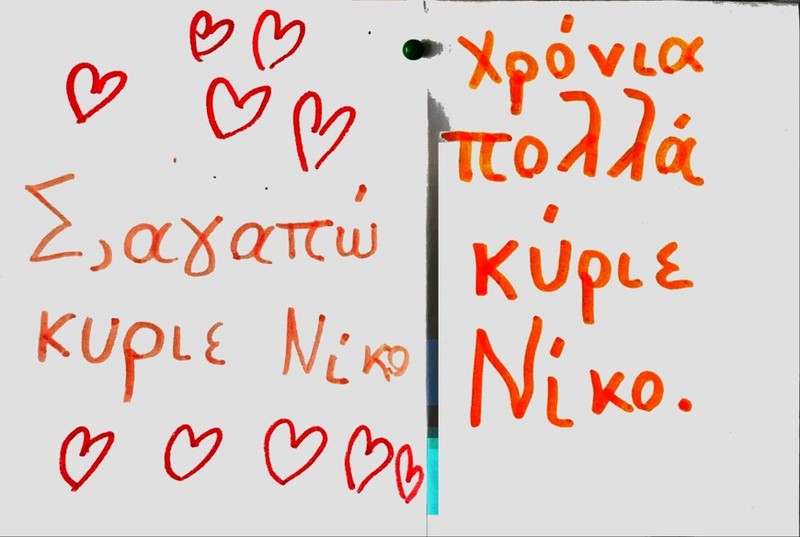 Σ,αγαπώ
κυριε Νίκο
χρόνια
πολλά
κύριε
Νίκο.